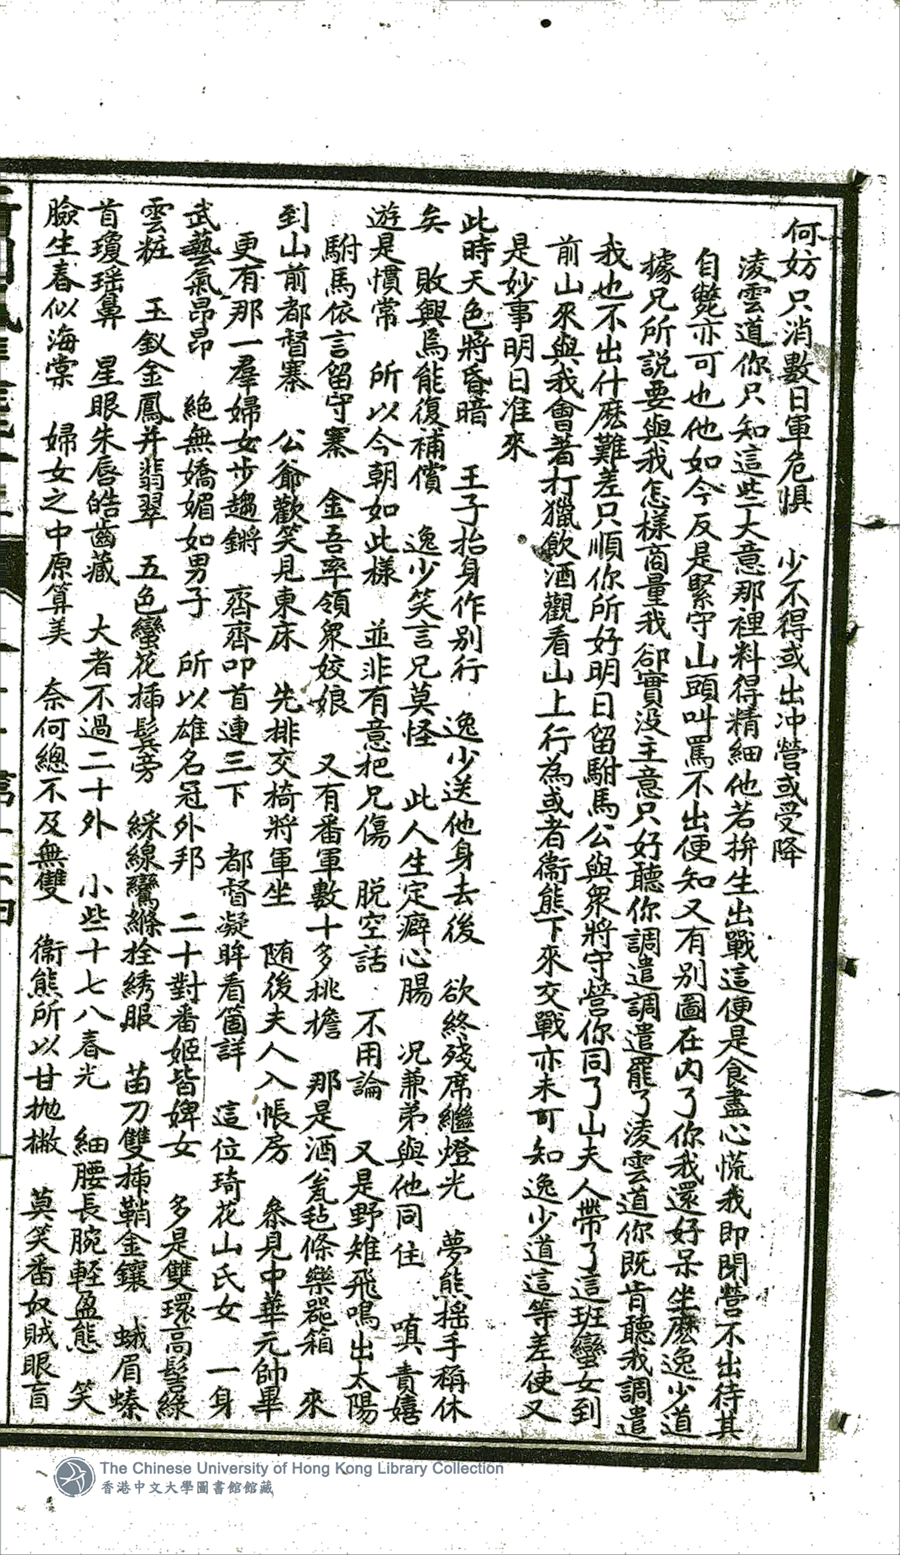 何妨只消數日軍危惧　少不得或出冲營或受降
凌雲道你只知這些大意那裡料得精細他若拚生出戰這便是食盡心慌我即閉營不出待其
自斃亦可也他如今反是緊守山頭叫罵不出便知又有別圖在內了你我還好呆坐麽逸少道
據兄所説要與我怎樣商量我卻實没主意只好聽你調遣調遣罷了凌雲道你既肯聽我調遣
我也不出什麽難差只順你所好明日留駙馬公與衆將守營你同了山夫人帶了這班蠻女到
前山來與我會着打獵飲酒觀看山上行為或者衞熊下來交戰亦未可知逸少道這等差使又
是妙事明日准來
此時天色將昏暗　王子抬身作別行　逸少送他身去後　欲終殘席繼燈光　夢熊搖手稱休
矣　敗興焉能復補償　逸少笑言兄莫怪　此人生定癖心腸　况兼弟與他同住　嗔責嬉
遊是慣常　所以今朝如此樣　並非有意把兄傷　脱空話　不用論　又是野雉飛鳴出太陽
駙馬依言留守寨　金吾率領衆姣娘　又有番軍數十多挑擔　那是酒瓮毡條樂器箱　來
到山前都督寨　公爺歡笑見東床　先排交椅將軍坐　随後夫人入帳房　叅見中華元帥畢
更有那一羣婦女步趨鏘　齊齊叩首連三下　都督凝眸看箇詳　這位琦花山氏女　一身
武藝氣昂昂　絶無嬌媚如男子　所以雄名冠外邦　二十對番姬皆婢女　多是雙環高髻綠
雲粧　玉釵金鳳并翡翠　五色蠻花揷鬂旁　綵線鸞縧拴綉服　苗刀雙揷鞘金鑲　蛾眉螓
首瓊瑶鼻　星眼朱唇皓齒藏　大者不過二十外　小些十七八春光　細腰長腕輕盈態　笑
臉生春似海棠　婦女之中原算美　奈何總不及無雙　衞熊所以甘抛撇　莫笑番奴賊眼盲
The Chinese University of Hong Kong Library Collection
香港中文大學圖書館館藏